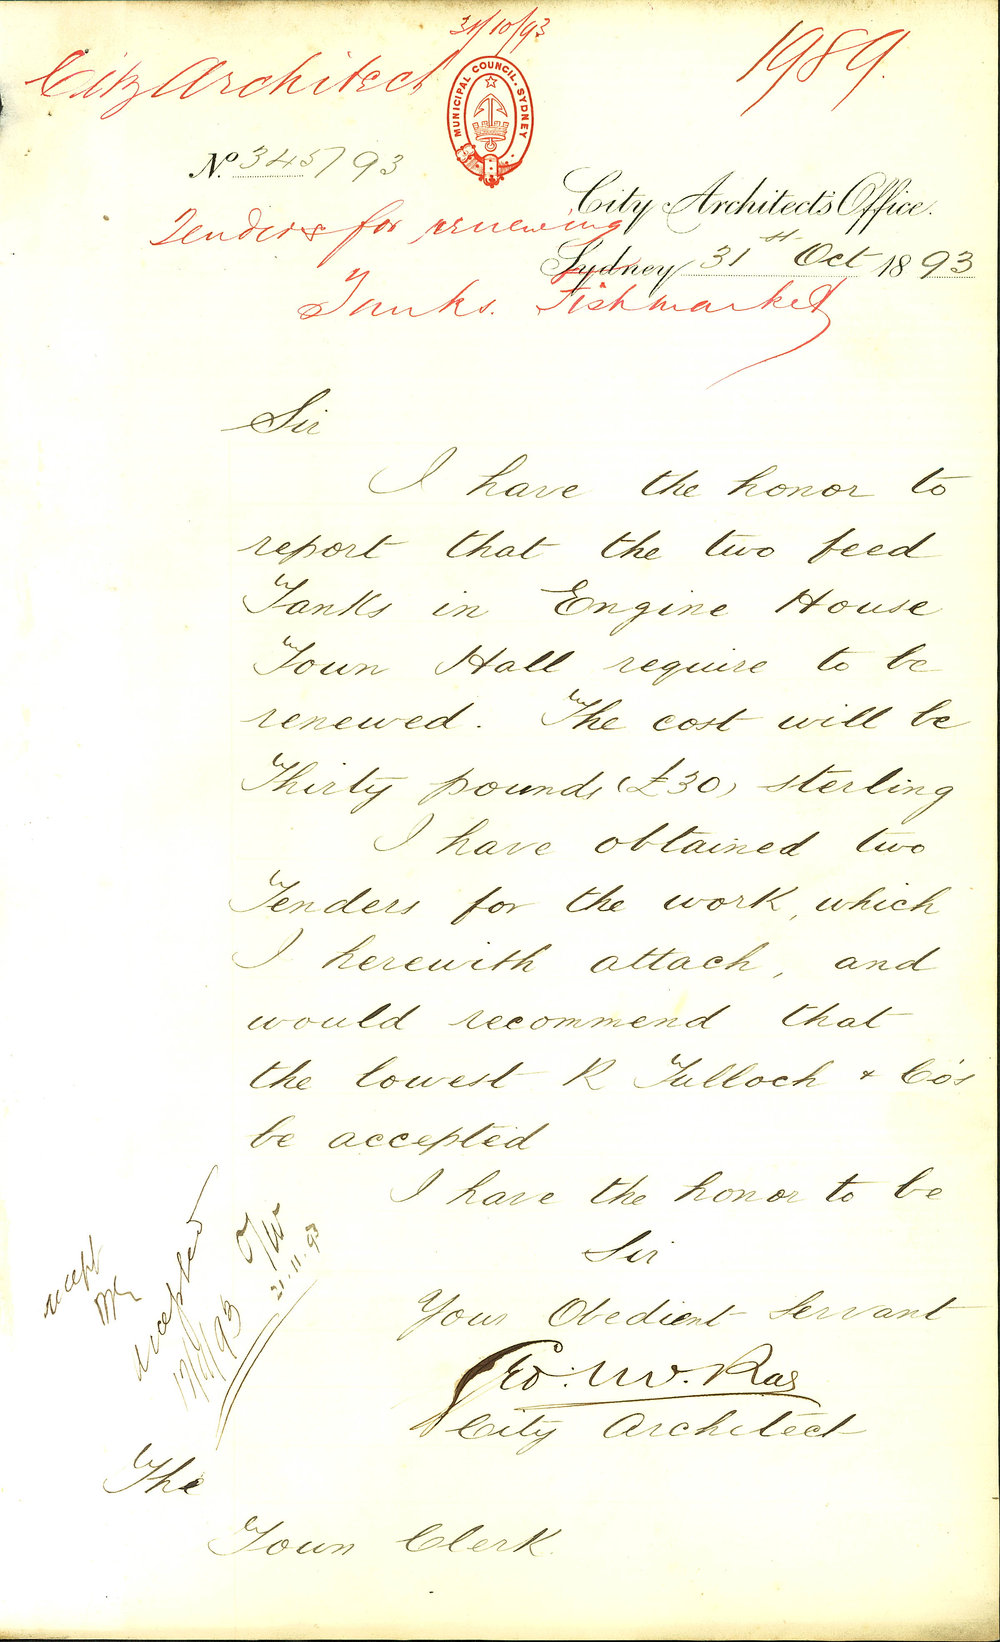 31/10/93
City Architect
1989.
MUNICIPAL COUNCIL. SYDNEY
No. 345/93
City Architect's Office.
Tenders for renewing
Sydney 31st Oct 1893
Tanks. Fishmarket
Sir
I have the honor to
report that the two feed
Tanks in Engine House
Town Hall require to be
renewed. The cost will be
Thirty pounds (£30) sterling
I have obtained two
Tenders for the work, which
I herewith attach, and
would recommend that
the lowest R Tulloch & Co's
be accepted
I have the honor to be
Sir
Your Obedient Servant
Geo: McRae
City Architect
accept
accepted
17/11/93
O/W
21.11.93
The
Town Clerk